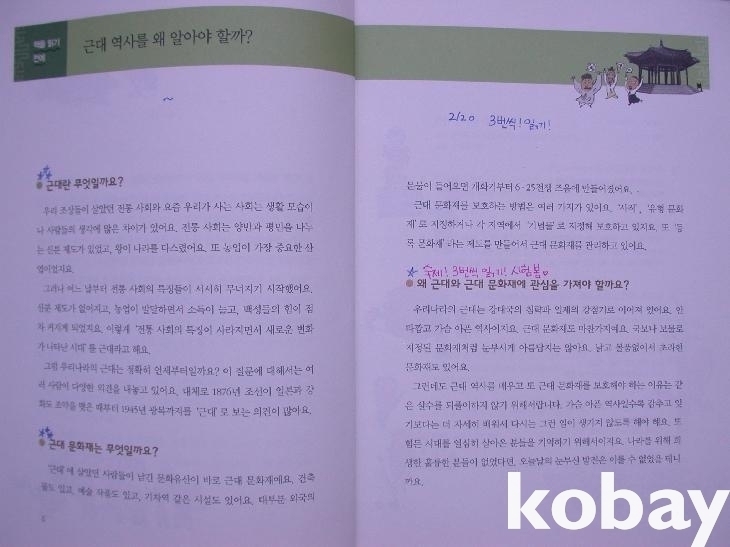 책을 읽기
전에
근대 역사를 왜 알아야 할까?
~
근대란 무엇일까요?
우리 조상들이 살았던 전통 사회와 요즘 우리가 사는 사회는 생활 모습이
나 사람들의 생각에 많은 차이가 있어요. 전통 사회는 양반과 평민을 나누
는 신분 제도가 있었고, 왕이 나라를 다스렸어요. 또 농업이 가장 중요한 산
업이었지요.
그러나 어느 날부터 전통 사회의 특징들이 서서히 무너지기 시작했어요.
신분 제도가 없어지고, 농업이 발달하면서 소득이 늘고, 백성들의 힘이 점
차 커지게 되었지요. 이렇게 '전통 사회의 특징이 사라지면서 새로운 변화
가 나타난 시대'를 근대라고 해요.
그럼 우리나라의 근대는 정확히 언제부터일까요? 이 질문에 대해서는 여
러 사람이 다양한 의견을 내놓고 있어요. 대체로 1876년 조선이 일본과 강
화도 조약을 맺은 때부터 1945년 광복까지를 '근대'로 보는 의견이 많아요.
근대 문화재는 무엇일까요?
'근대'에 살았던 사람들이 남긴 문화유산이 바로 근대 문화재예요. 건축
물도 있고, 예술 작품도 있고, 기차역 같은 시설도 있어요. 대부분 외국의
6
2/20 3번씩! 읽기!
문물이 들어오면 개화기부터 6·25전쟁 즈음에 만들어졌어요.
근대 문화재를 보호하는 방법은 여러 가지가 있어요. '사적', '유형 문화
재'로 지정하거나 각 지역에서 '기념물'로 지정해 보호하고 있지요. 또 '등
록 문화재'라는 제도를 만들어서 근대 문화재를 관리하고 있어요.
숙제! 3번씩 읽기! 시험봄
왜 근대와 근대 문화재에 관심을 가져야 할까요?
우리나라의 근대는 강대국의 침략과 일제의 강점기로 이어져 있어요. 안
타깝고 가슴 아픈 역사이지요. 근대 문화재도 마찬가지예요. 국보나 보물로
지정된 문화재처럼 눈부시게 아름답지는 않아요. 낡고 볼품없어서 초라한
문화재도 있어요.
그런데도 근대 역사를 배우고 또 근대 문화재를 보호해야 하는 이유는 같
은 실수를 되풀이하지 않기 위해서랍니다. 가슴 아픈 역사일수록 감추고 잊
기보다는 더 자세히 배워서 다시는 그런 일이 생기지 않도록 해야 해요. 또
힘든 시대를 열심히 살아온 분들을 기억하기 위해서이지요. 나라를 위해 희
생한 훌륭한 분들이 없었다면, 오늘날의 눈부신 발전은 이룰 수 없었을 테니
까요.
kobay